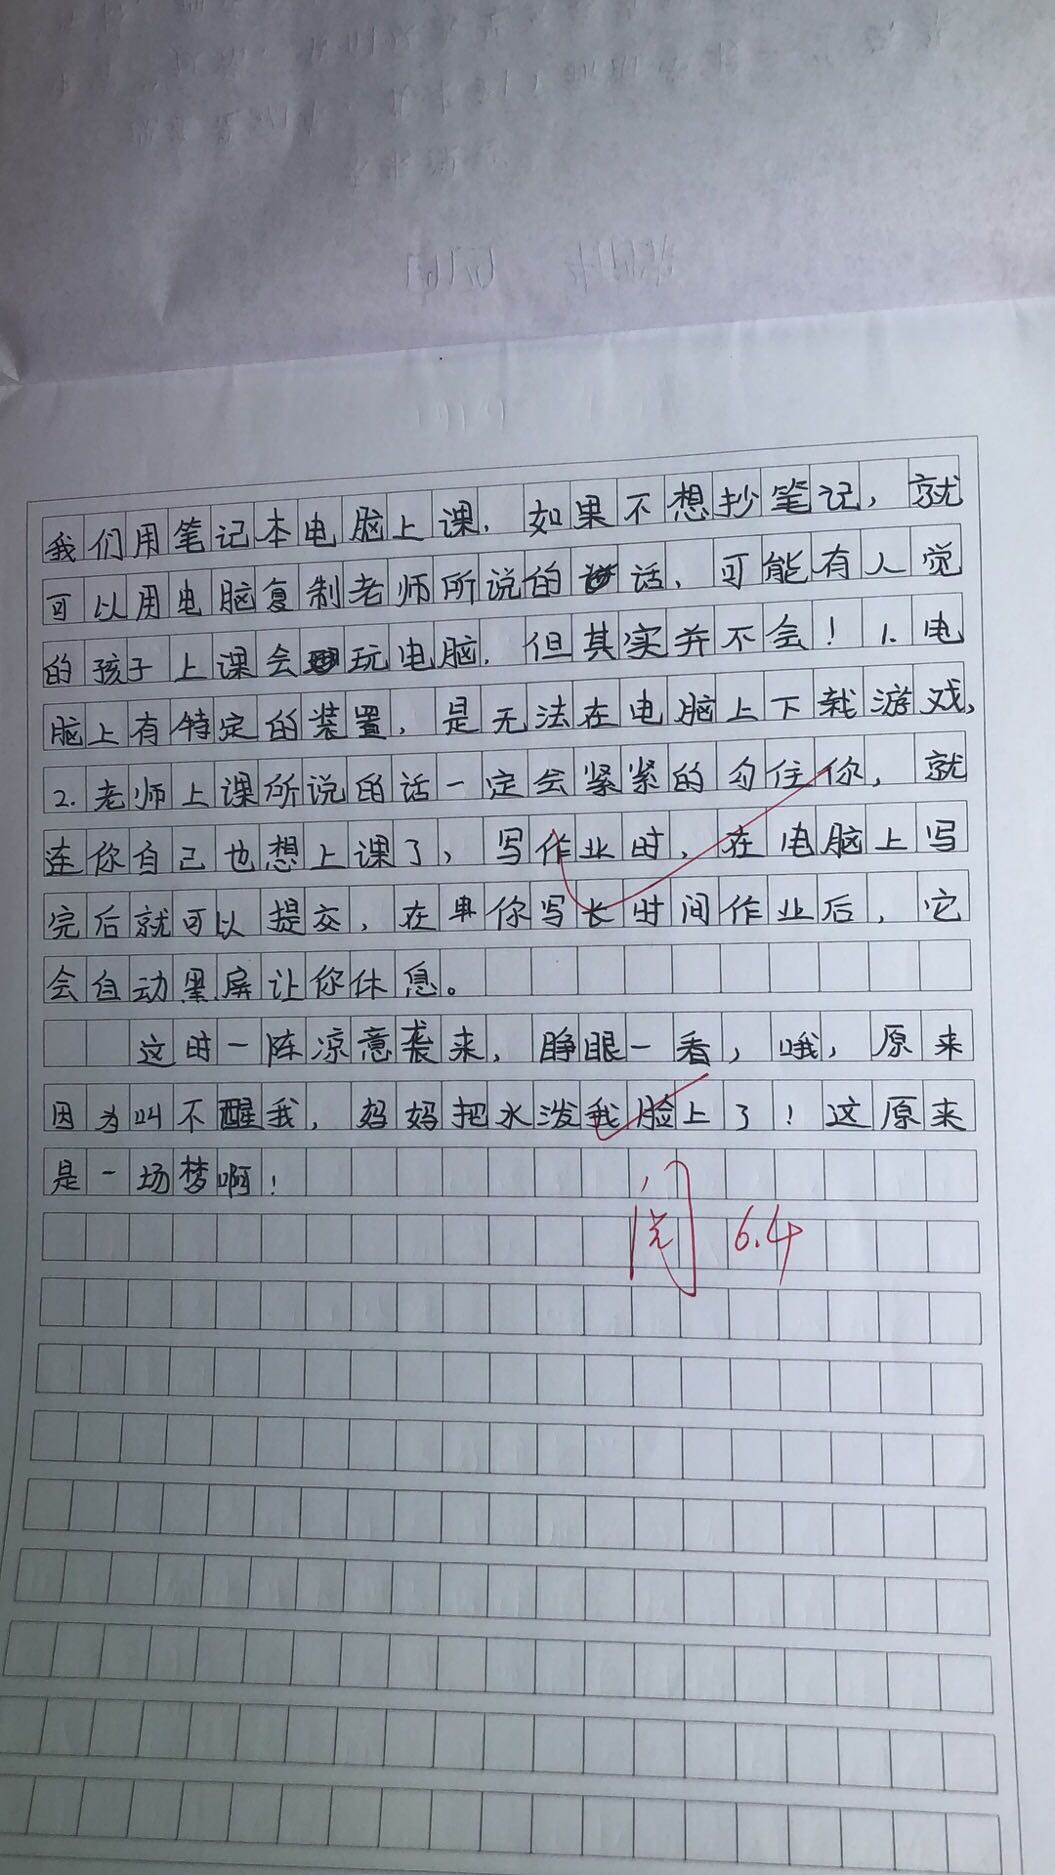 我们用笔记本电脑上课，如果不想抄笔记，就
可以用电脑复制老师所说的话，可能有人觉
的孩子上课会玩电脑，但其实并不会！1.电
脑上有特定的装置，是无法在电脑上下载游戏，
2.老师上课所说的话一定会紧紧的勾住你，就
连你自己也想上课了，写作业时，在电脑上写
完后就可以提交，在你写长时间作业后，它
会自动黑屏让你休息。
这时一阵凉意袭来，睁眼一看，哦，原来
因为叫不醒我，妈妈把水泼我脸上了！这原来
是一场梦啊！
阅 6.4